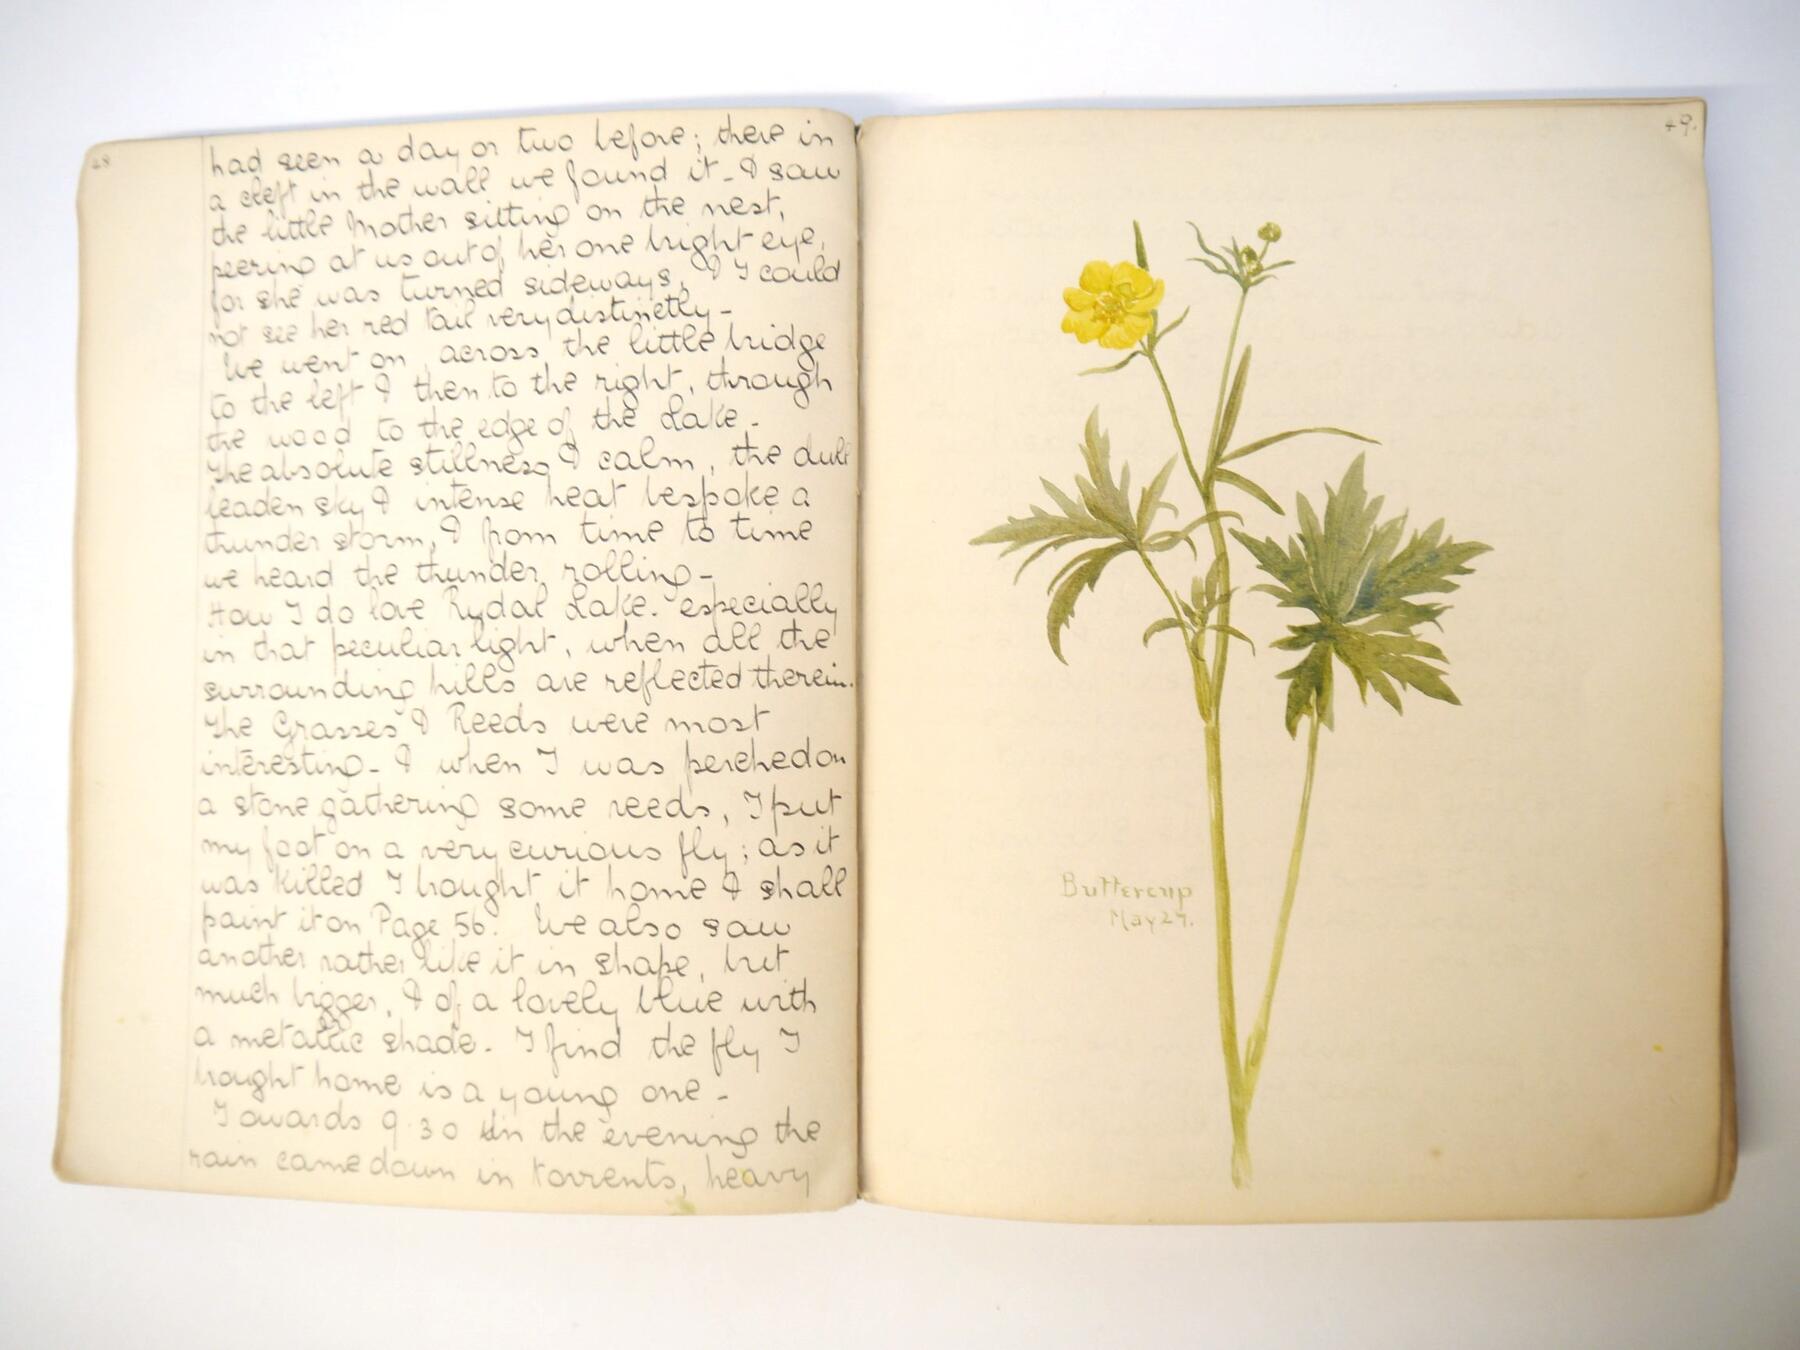 48
had seen a day or two before; there in
a cleft in the wall we found it - I saw
the little Mother sitting on the nest,
peering at us out of her one bright eye,
for she was turned sideways, & I could
not see her red tail very distinctly -
We went on, across the little bridge
to the left & then to the right, through
the wood to the edge of the Lake -
The absolute stillness & calm, the dull
leaden sky & intense heat bespoke a
thunder storm, & from time to time
we heard the thunder rolling -
How I do love Rydal Lake. especially
in that peculiar light, when all the
surrounding hills are reflected therein.
The Grasses & Reeds were most
interesting - & when I was perched on
a stone gathering some reeds, I put
my foot on a very curious fly; as it
was killed I brought it home & shall
paint it on Page 56. We also saw
another rather like it in shape, but
much bigger, & of a lovely blue with
a metallic shade - I find the fly I
brought home is a young one -
Towards 9.30 in the evening the
rain came down in torrents, heavy
49.
Buttercup
May 27.